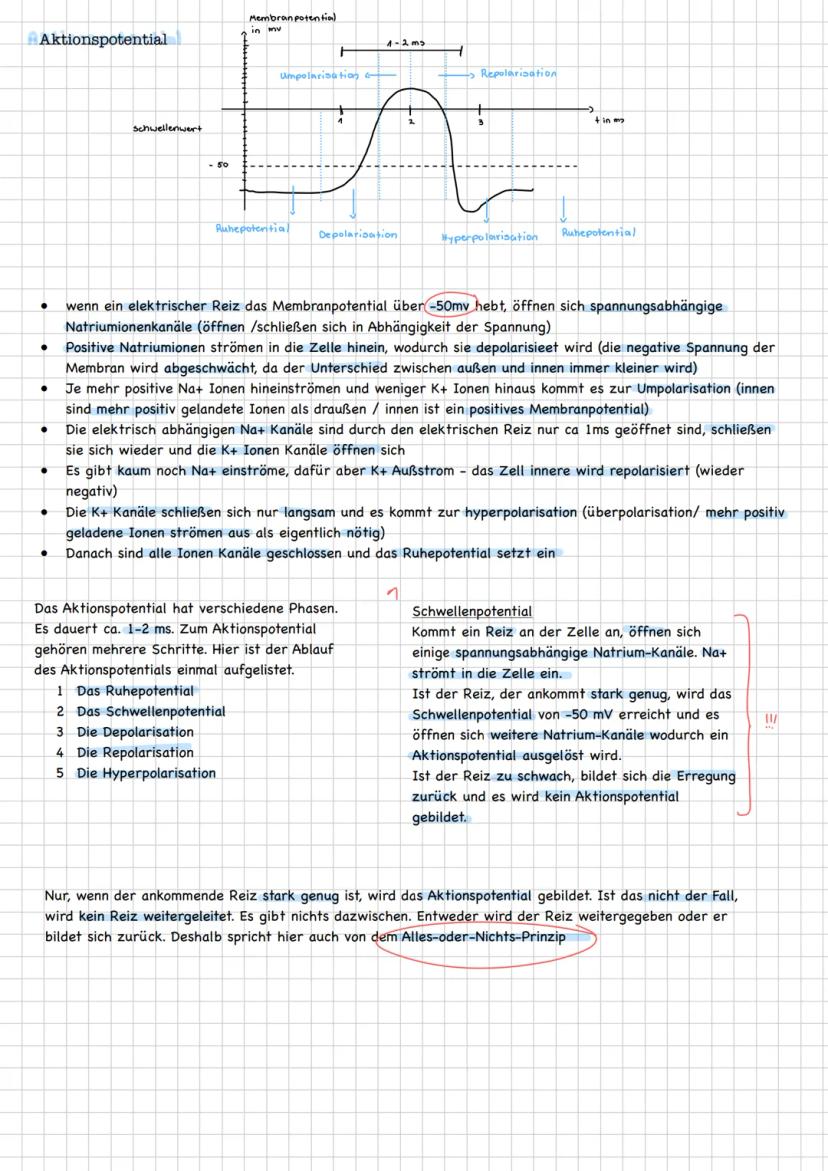 Aktionspotential
Membranpotential
in mv
1-2 ms
Umpolarisation
Repolarisation
Schwellenwert
1
2
3
t in ms
- 50
Ruhepotential
Depolarisation
Hyperpolarisation
Ruhepotential
• wenn ein elektrischer Reiz das Membranpotential über -50mv hebt, öffnen sich spannungsabhängige
Natriumionenkanäle (öffnen /schließen sich in Abhängigkeit der Spannung)
• Positive Natriumionen strömen in die Zelle hinein, wodurch sie depolarisieet wird (die negative Spannung der
Membran wird abgeschwächt, da der Unterschied zwischen außen und innen immer kleiner wird)
• Je mehr positive Na+ Ionen hineinströmen und weniger K+ Ionen hinaus kommt es zur Umpolarisation (innen
sind mehr positiv gelandete Ionen als draußen / innen ist ein positives Membranpotential)
• Die elektrisch abhängigen Na+ Kanäle sind durch den elektrischen Reiz nur ca 1ms geöffnet sind, schließen
sie sich wieder und die K+ Ionen Kanäle öffnen sich
• Es gibt kaum noch Na+ einströme, dafür aber K+ Außstrom - das Zell innere wird repolarisiert (wieder
negativ)
• Die K+ Kanäle schließen sich nur langsam und es kommt zur hyperpolarisation (überpolarisation/ mehr positiv
geladene Ionen strömen aus als eigentlich nötig)
• Danach sind alle Ionen Kanäle geschlossen und das Ruhepotential setzt ein
Das Aktionspotential hat verschiedene Phasen.
Es dauert ca. 1-2 ms. Zum Aktionspotential
gehören mehrere Schritte. Hier ist der Ablauf
des Aktionspotentials einmal aufgelistet.
1 Das Ruhepotential
2 Das Schwellenpotential
3 Die Depolarisation
4 Die Repolarisation
5 Die Hyperpolarisation
1
Schwellenpotential
Kommt ein Reiz an der Zelle an, öffnen sich
einige spannungsabhängige Natrium-Kanäle. Na+
strömt in die Zelle ein.
Ist der Reiz, der ankommt stark genug, wird das
Schwellenpotential von -50 mV erreicht und es
öffnen sich weitere Natrium-Kanäle wodurch ein
Aktionspotential ausgelöst wird.
Ist der Reiz zu schwach, bildet sich die Erregung
zurück und es wird kein Aktionspotential
gebildet.
!!!
Nur, wenn der ankommende Reiz stark genug ist, wird das Aktionspotential gebildet. Ist das nicht der Fall,
wird kein Reiz weitergeleitet. Es gibt nichts dazwischen. Entweder wird der Reiz weitergegeben oder er
bildet sich zurück. Deshalb spricht hier auch von dem Alles-oder-Nichts-Prinzip